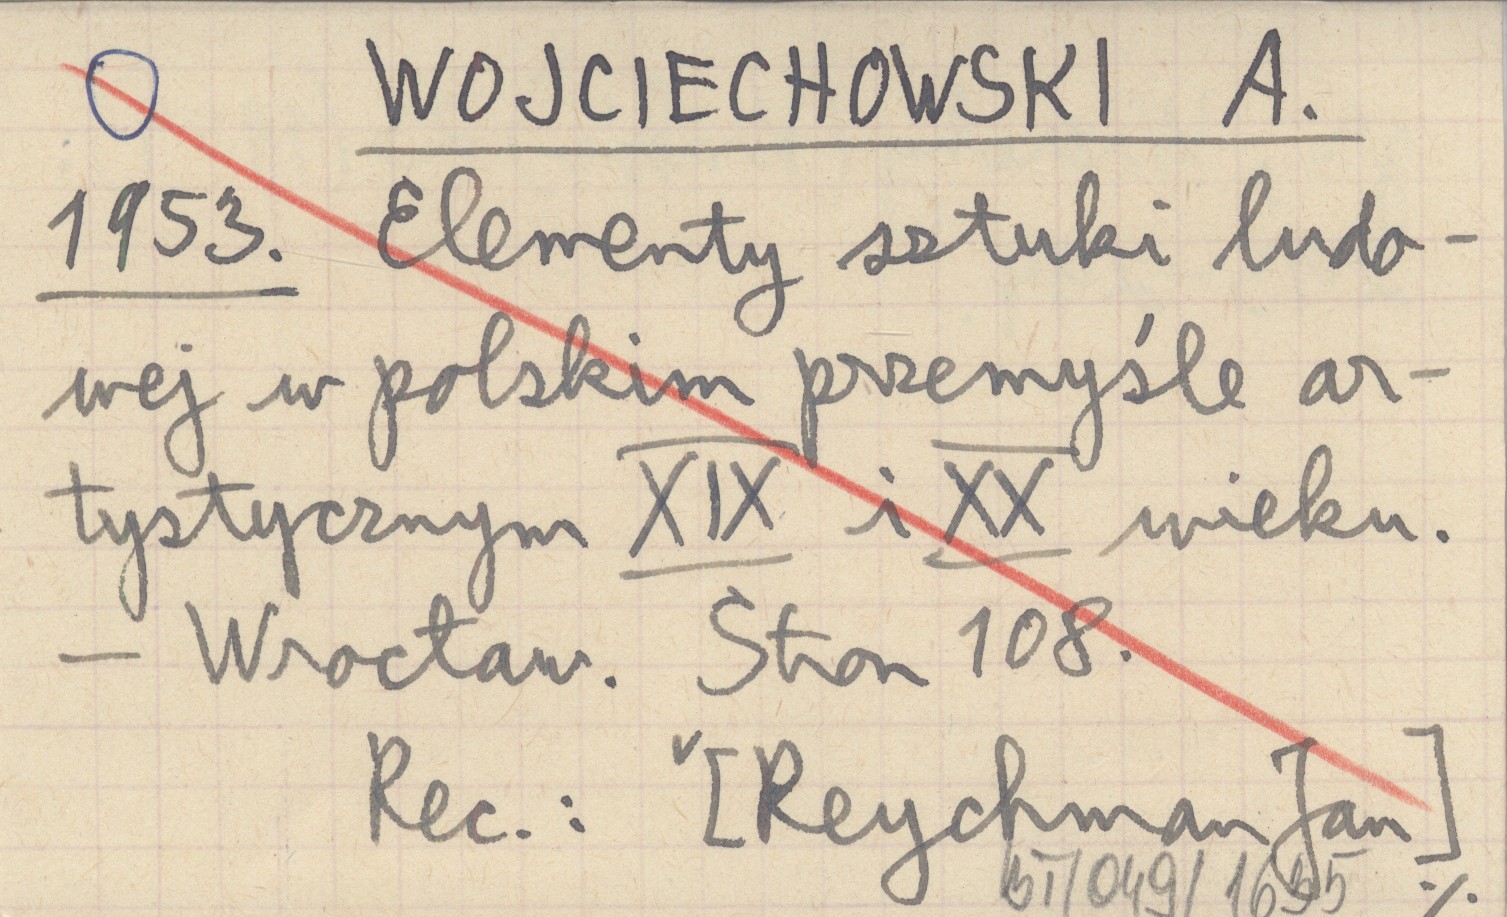 WOJCIECHOWSKI A.
1953. Elementy sztuki ludo-
wej w polskim przemyśle ar-
tystycznym XIX i XX wieku.
- Wrocław. Stron 108.
Rec.: [Reychman Jan]
/049/1655 ./.